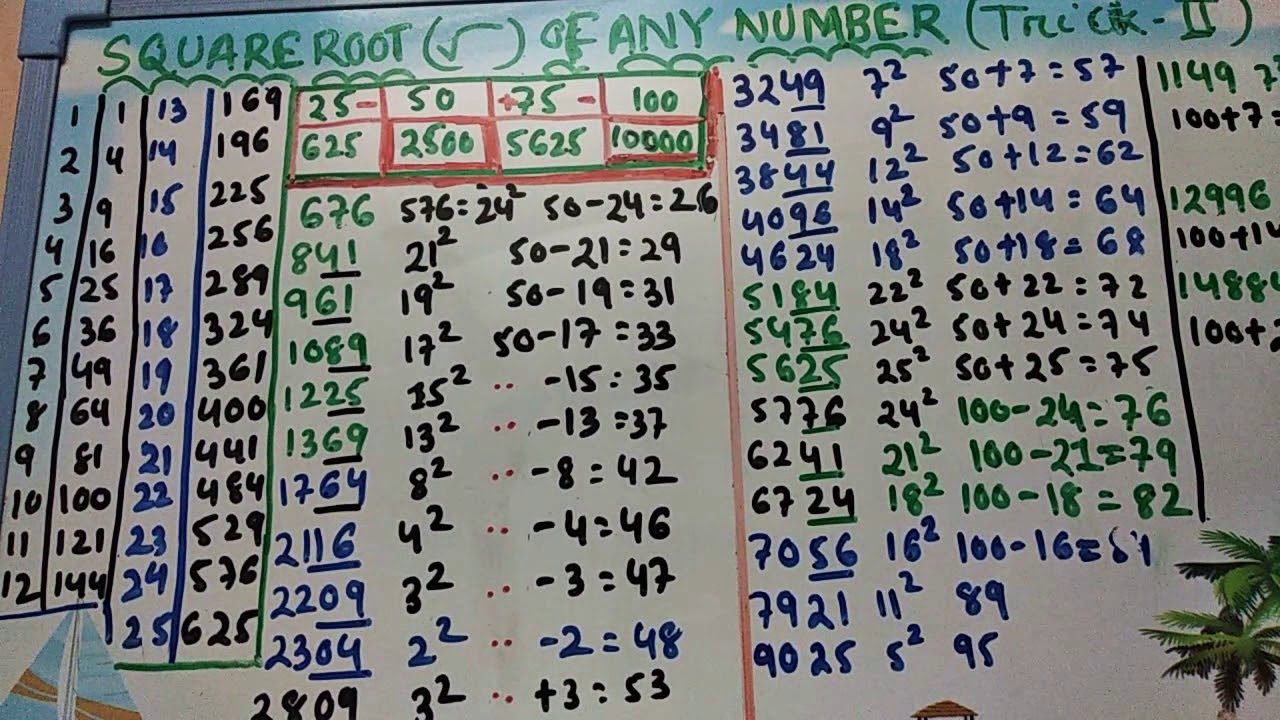 SQUARE ROOT (√) OF ANY NUMBER (Trick-II)
1 1 13 169
2 4 14 196
3 9 15 225
4 16 16 256
5 25 17 289
6 36 18 324
7 49 19 361
8 64 20 400
9 81 21 441
10 100 22 484
11 121 23 529
12 144 24 576
25 625
25 - 50 +75 - 100
625 2500 5625 10000
676 576=24² 50-24=26
841 21² 50-21=29
961 19² 50-19=31
1089 17² 50-17=33
1225 15² .. -15=35
1369 13² .. -13=37
1764 8² .. -8=42
2116 4² .. -4=46
2209 3² .. -3=47
2304 2² .. -2=48
2809 3² .. +3=53
3249 7² 50+7=57
3481 9² 50+9=59
3844 12² 50+12=62
4096 14² 50+14=64
4624 18² 50+18=68
5184 22² 50+22=72
5476 24² 50+24=74
5625 25² 50+25=75
5776 24² 100-24=76
6241 21² 100-21=79
6724 18² 100-18=82
7056 16² 100-16=
7921 11² 89
9025 5² 95
1149 7²
100+7=
12996
100+14
14884
100+